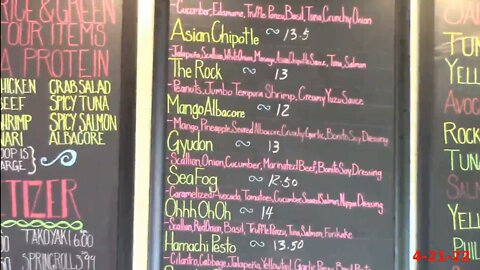 RICE & GREEN
OUR ITEMS
A PROTEIN
CHICKEN CRAB SALAD
BEEF SPICY TUNA
SHRIMP SPICY SALMON
ALBACORE
TIZER
TAKOYAKI 6.00
SPRINGROLLS
-Cucumber, Edamame, Truffle Ponzu, Basil, Tuna, Crunchy Onion
Asian Chipotle ~ 13.5
-Jalapeño, Scallion, White Onion, Mango, Asian Chipotle Sauce, Tuna, Salmon
The Rock ~ 13
-Peanuts, Jumbo Tempura Shrimp, Creamy Yuzu Sauce
Mango Albacore ~ 12
-Mango, Pineapple, Seared Albacore, Crunchy Garlic, Bonito Soy Dressing
Gyudon ~ 13
-Scallion, Onion, Cucumber, Marinated Beef, Bonito Soy Dressing
Sea Fog ~ 12.50
-Caramelized Avocado, Tomatoes, Cucumber, Seared Salmon, Nippon Dressing
Ohhh Oh Oh ~ 14
-Scallion, Red Onion, Basil, Truffle Ponzu, Tuna, Salmon, Furikake
Hamachi Pesto ~ 13.50
-Cilantro, Cabbage, Jalapeño, Yellowtail
TUNA
YELL
AVOC
ROCK
TUNA
SAL
YELL
PUL
4-21-22